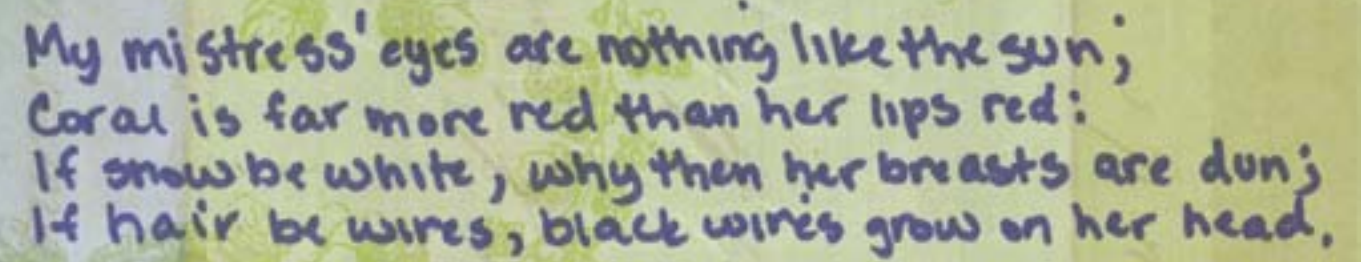 My mistress' eyes are nothing like the sun;
Coral is far more red than her lips red:
If snow be white, why then her breasts are dun;
If hair be wires, black wires grow on her head.